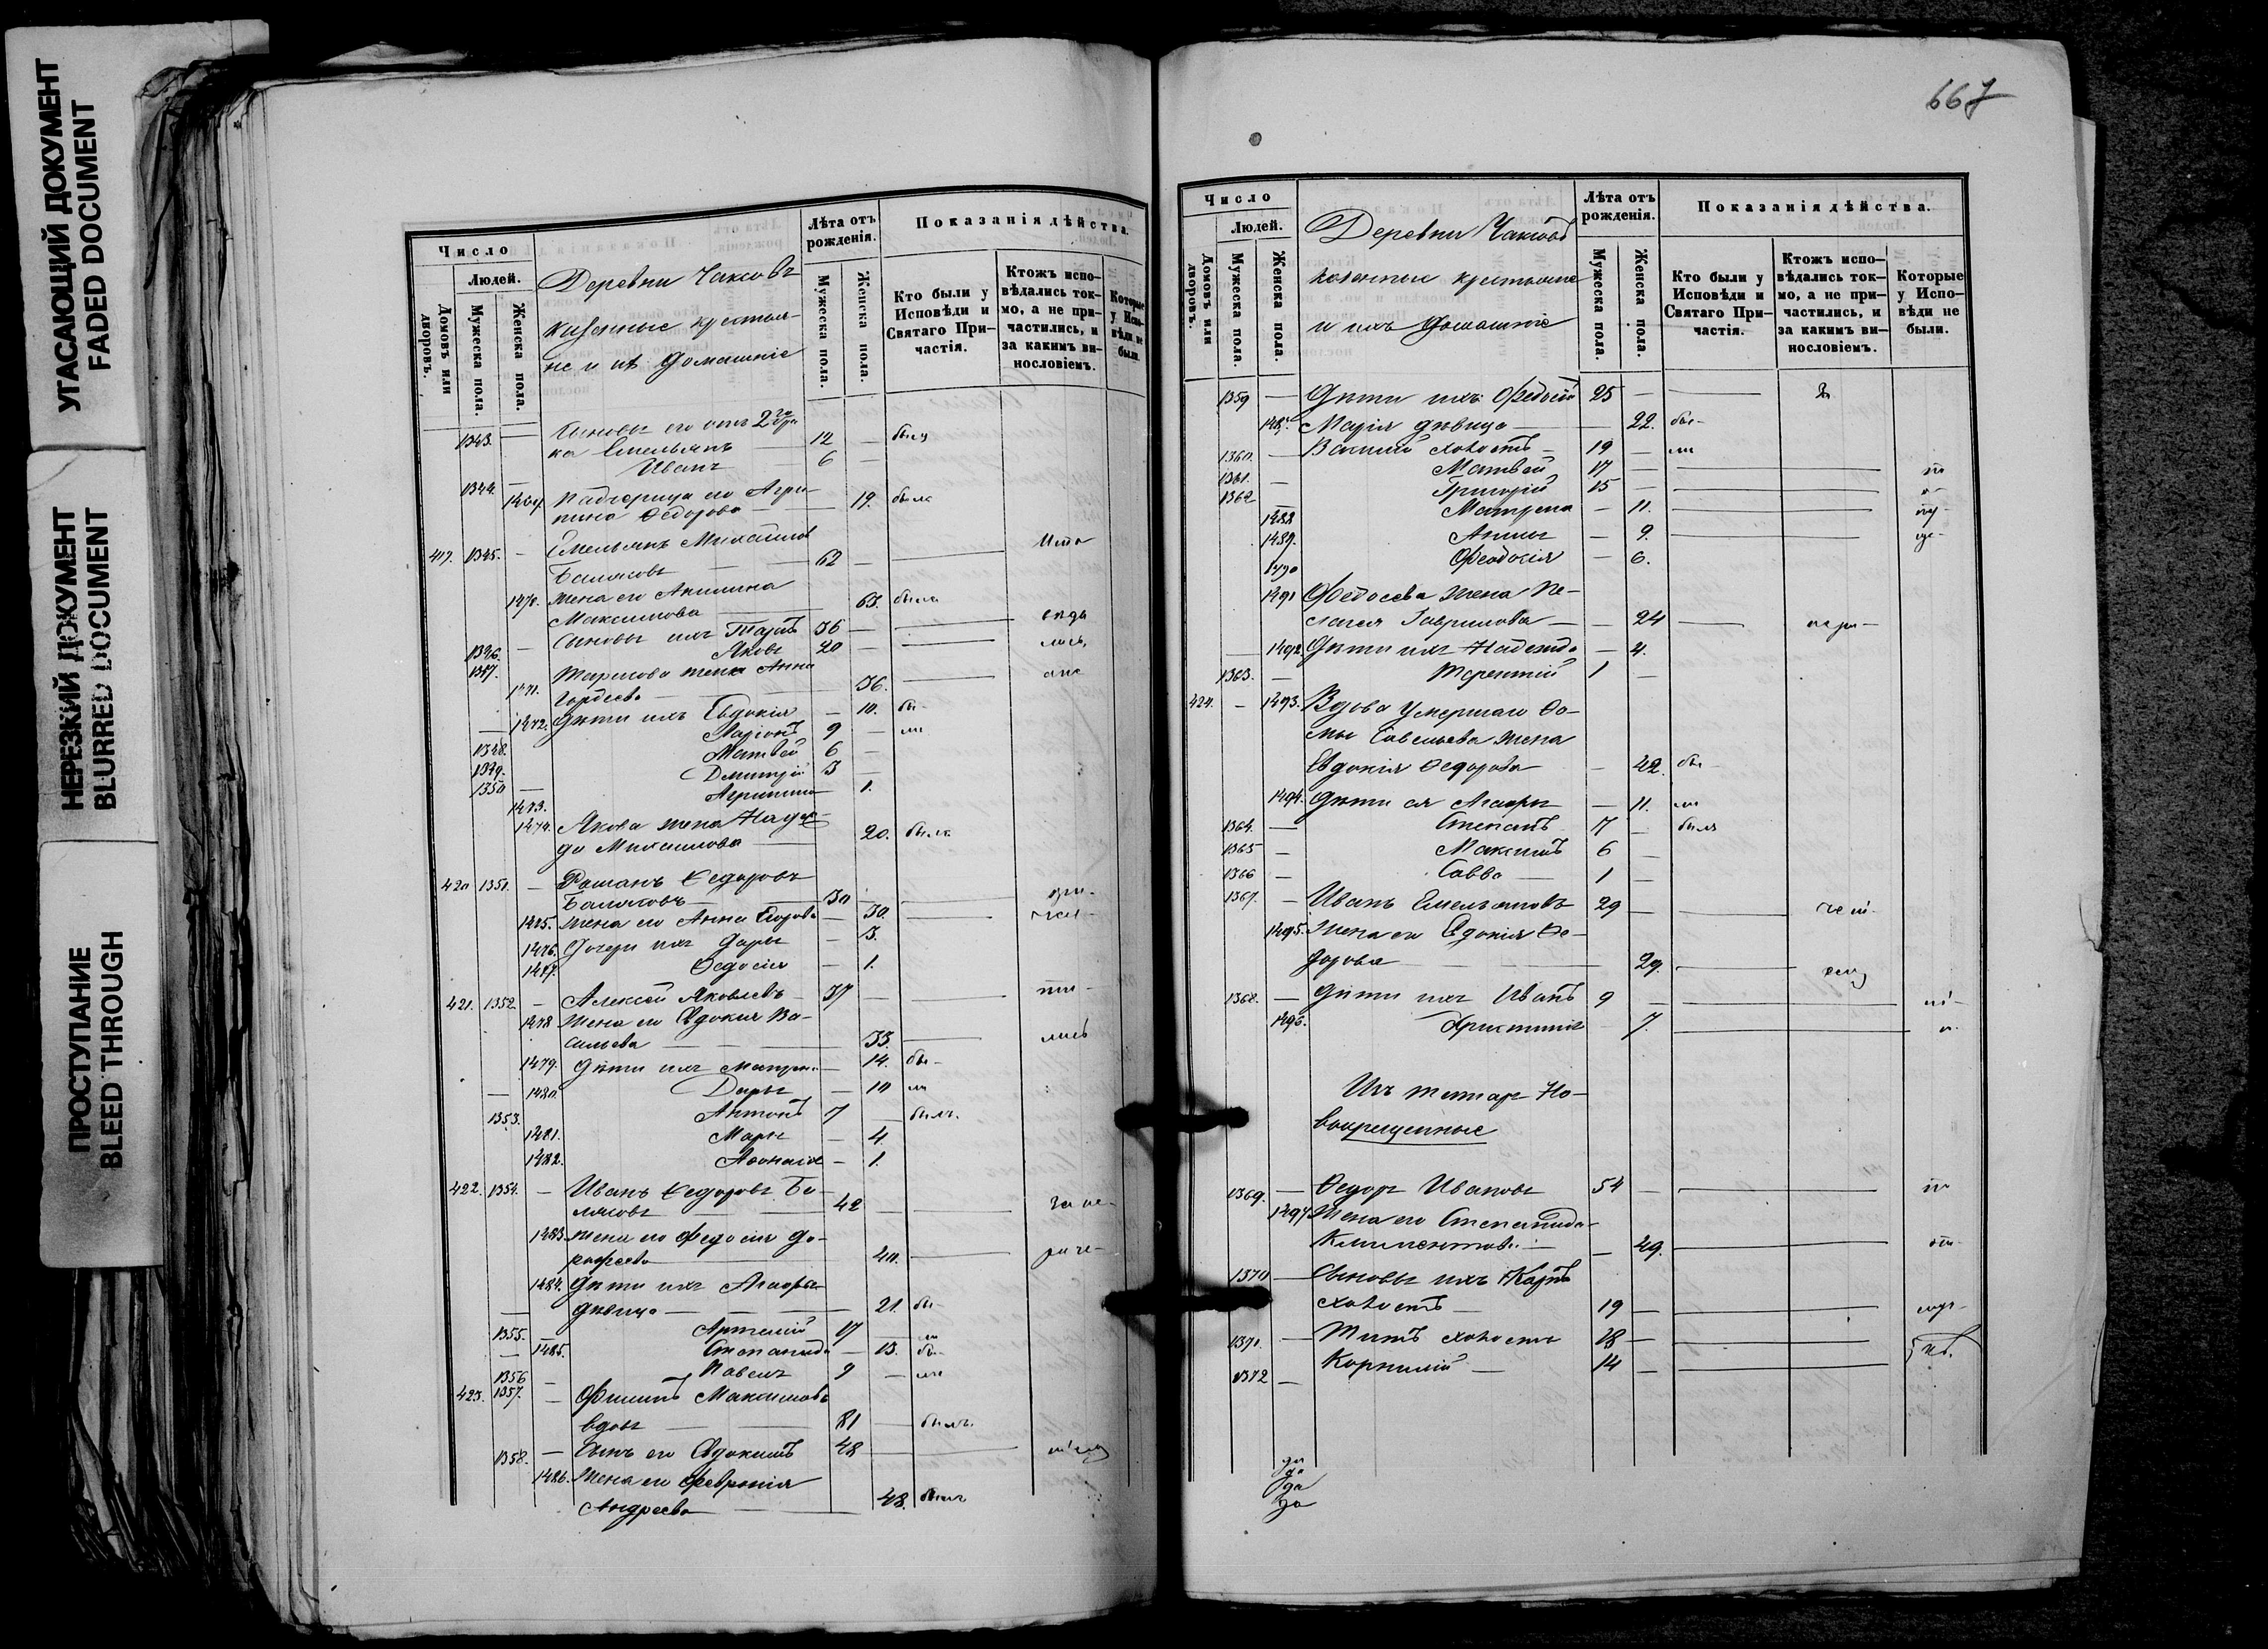 УГАСАЮЩИЙ ДОКУМЕНТ
FADED DOCUMENT
НЕРЕЗКИЙ ДОКУМЕНТ
BLURRED DOCUMENT
ПРОСТУПАНИЕ
BLEED THROUGH
Число
Людей.
Домовъ или дворовъ.
Мужеска пола.
Женска пола.
Деревни Чаксовъ
казенные крестья-
не и ихъ домашніе
Лѣта отъ рожденія.
Мужеска пола.
Женска пола.
Показанія дѣйства.
Кто были у Исповѣди и Святаго При-частія.
Ктожъ испо-вѣдались ток-мо, а не при-частились, и за какимъ ви-нословіемъ.
Которые у Испо-вѣди не были.
1343. — Сыновья его отъ 2го бра
ка Емельянъ 12 —
Иванъ 6 —
1344. —
Падчерица его Агри-
пина Ѳедорова — 19. была
419. 1345. — Емельянъ Михайлов
62 —
1470. Жена его Акилина
Максимова — 63. была
1346. — Сыновья ихъ Тарасъ 36 —
1347. Яковъ 20 —
1471. Тарасова жена Анна
Гордеева 36.
1472. Дѣти ихъ Евдокія — 10. бы-
1348. Ларіонъ 9 — ли
1349. Матвей 6 —
1350 — Дмитрій 3 —
1473. Агрипина 1.
1474. Якова жена Надеж-
да Михаилова 20. была
420 1351. — Романъ Ѳедоровъ
30
1475. Жена его Анна Егорова — 30.
1476. Дочери ихъ Дарья — 3.
1477. Ѳедосія — 1.
421. 1352. — Алексей Яковлевъ 37 —
1478 Жена его Евдокия Ва-
сильева 33.
1479. Дѣти ихъ Матрена — 14. бы-
1480. Дарья — 10 ли
1353. Антонъ 7 — былъ.
1481. Марья — 4.
1482. Аѳонасія — 1.
422. 1354. — Иванъ Ѳедоровъ Ба-
ляковъ 42
1483. Жена его Федосия До-
рофеева 40.
1484. Дѣти ихъ Агафья
дѣвица 21. бы-
1355. Артемій 17 — ли
1485. Степанида — 13. бы-
1356 — Павелъ 9 — ли
423. 1357. — Филипъ Максимовъ
вдовъ 81 — былъ.
1358. — Сынъ его Евдокимъ 48
1486. Жена его Февронія
Андреева 48. была
667
Число
Людей.
Домовъ или дворовъ.
Мужеска пола.
Женска пола.
Деревни Чаксовъ
казенные крестьяне
и ихъ домашніе
Лѣта отъ рожденія.
Мужеска пола.
Женска пола.
Показанія дѣйства.
Кто были у Исповѣди и Святаго При-частія.
Ктожъ испо-вѣдались ток-мо, а не при-частились, и за какимъ ви-нословіемъ.
Которые у Испо-вѣди не были.
1359 — Дѣти ихъ Федосій 25 —
1487. Марія дѣвица — 22. бы-
1360. — Василій холостъ — 19 — ли
1361. — Матвей 17 —
1362 Григорій 15 —
1488 Матрена — 11.
1489. Анна — 9.
1490 Феодосія — 6.
1491 Федосева жена Пе-
лагея Гаврилова — — 24
1492. Дѣти ихъ Надежда — 4.
1363. — Терентій 1 —
424. — 1493. Вдова умершаго Ѳо-
мы Савельева жена
Евдокія Ѳедорова — 42. бы-
1494. Дѣти ея Агафья — 11. ли
1364. — Степанъ 7 — былъ
1365 — Максимъ 6 —
1366 — Савва 1 —
1367. — Иванъ Емельяновъ 29 —
1495. Жена его Евдокія Ѳе-
дорова 29.
1368. — Дѣти ихъ Иванъ 9 —
1496. Христинія 7.
Изъ татаръ Но-
вокрещенные
1369. — Ѳедоръ Ивановъ 54 —
1497 Жена его Степанида
Климентова — 49.
1370 — Сыновья ихъ Карпъ
холостъ — 19 —
1371. — Титъ холостъ 18 —
1372 — Корнилій — 14 —